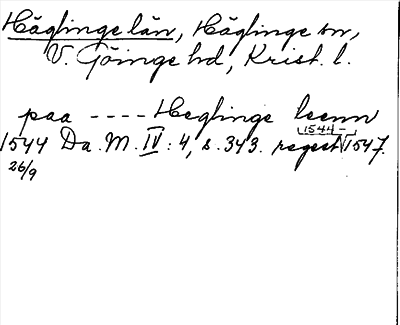 Häglinge län, Häglinge sn,
V. Göinge hd, Krist. l.
paa ---- Heglinge leenn
1544 –
1544 Da. M. IV: 4, s. 343. regest 1547.
26/9